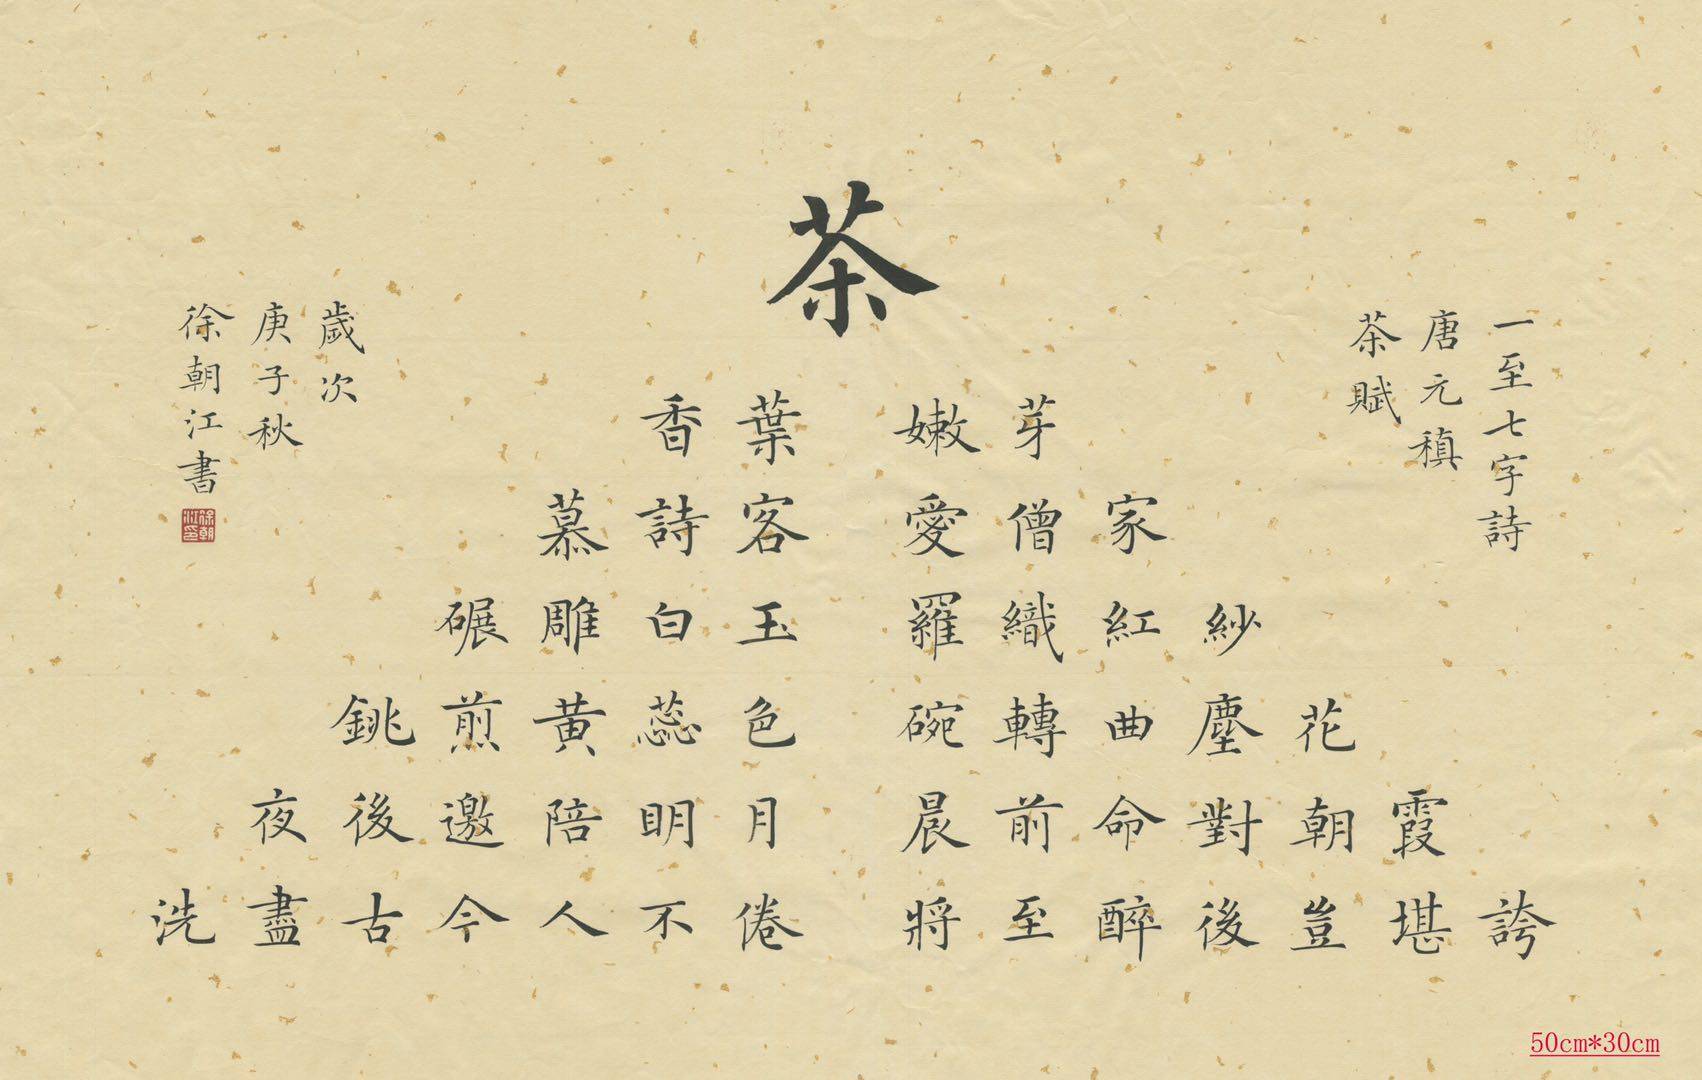 一至七字詩
唐元稹
茶賦
茶
香葉 嫩芽
慕詩客 愛僧家
碾雕白玉 羅織紅紗
銚煎黃蕊色 碗轉曲塵花
夜後邀陪明月 晨前命對朝霞
洗盡古今人不倦 將至醉後豈堪誇
歲次
庚子秋
徐朝江書
徐朝江印
50cm*30cm